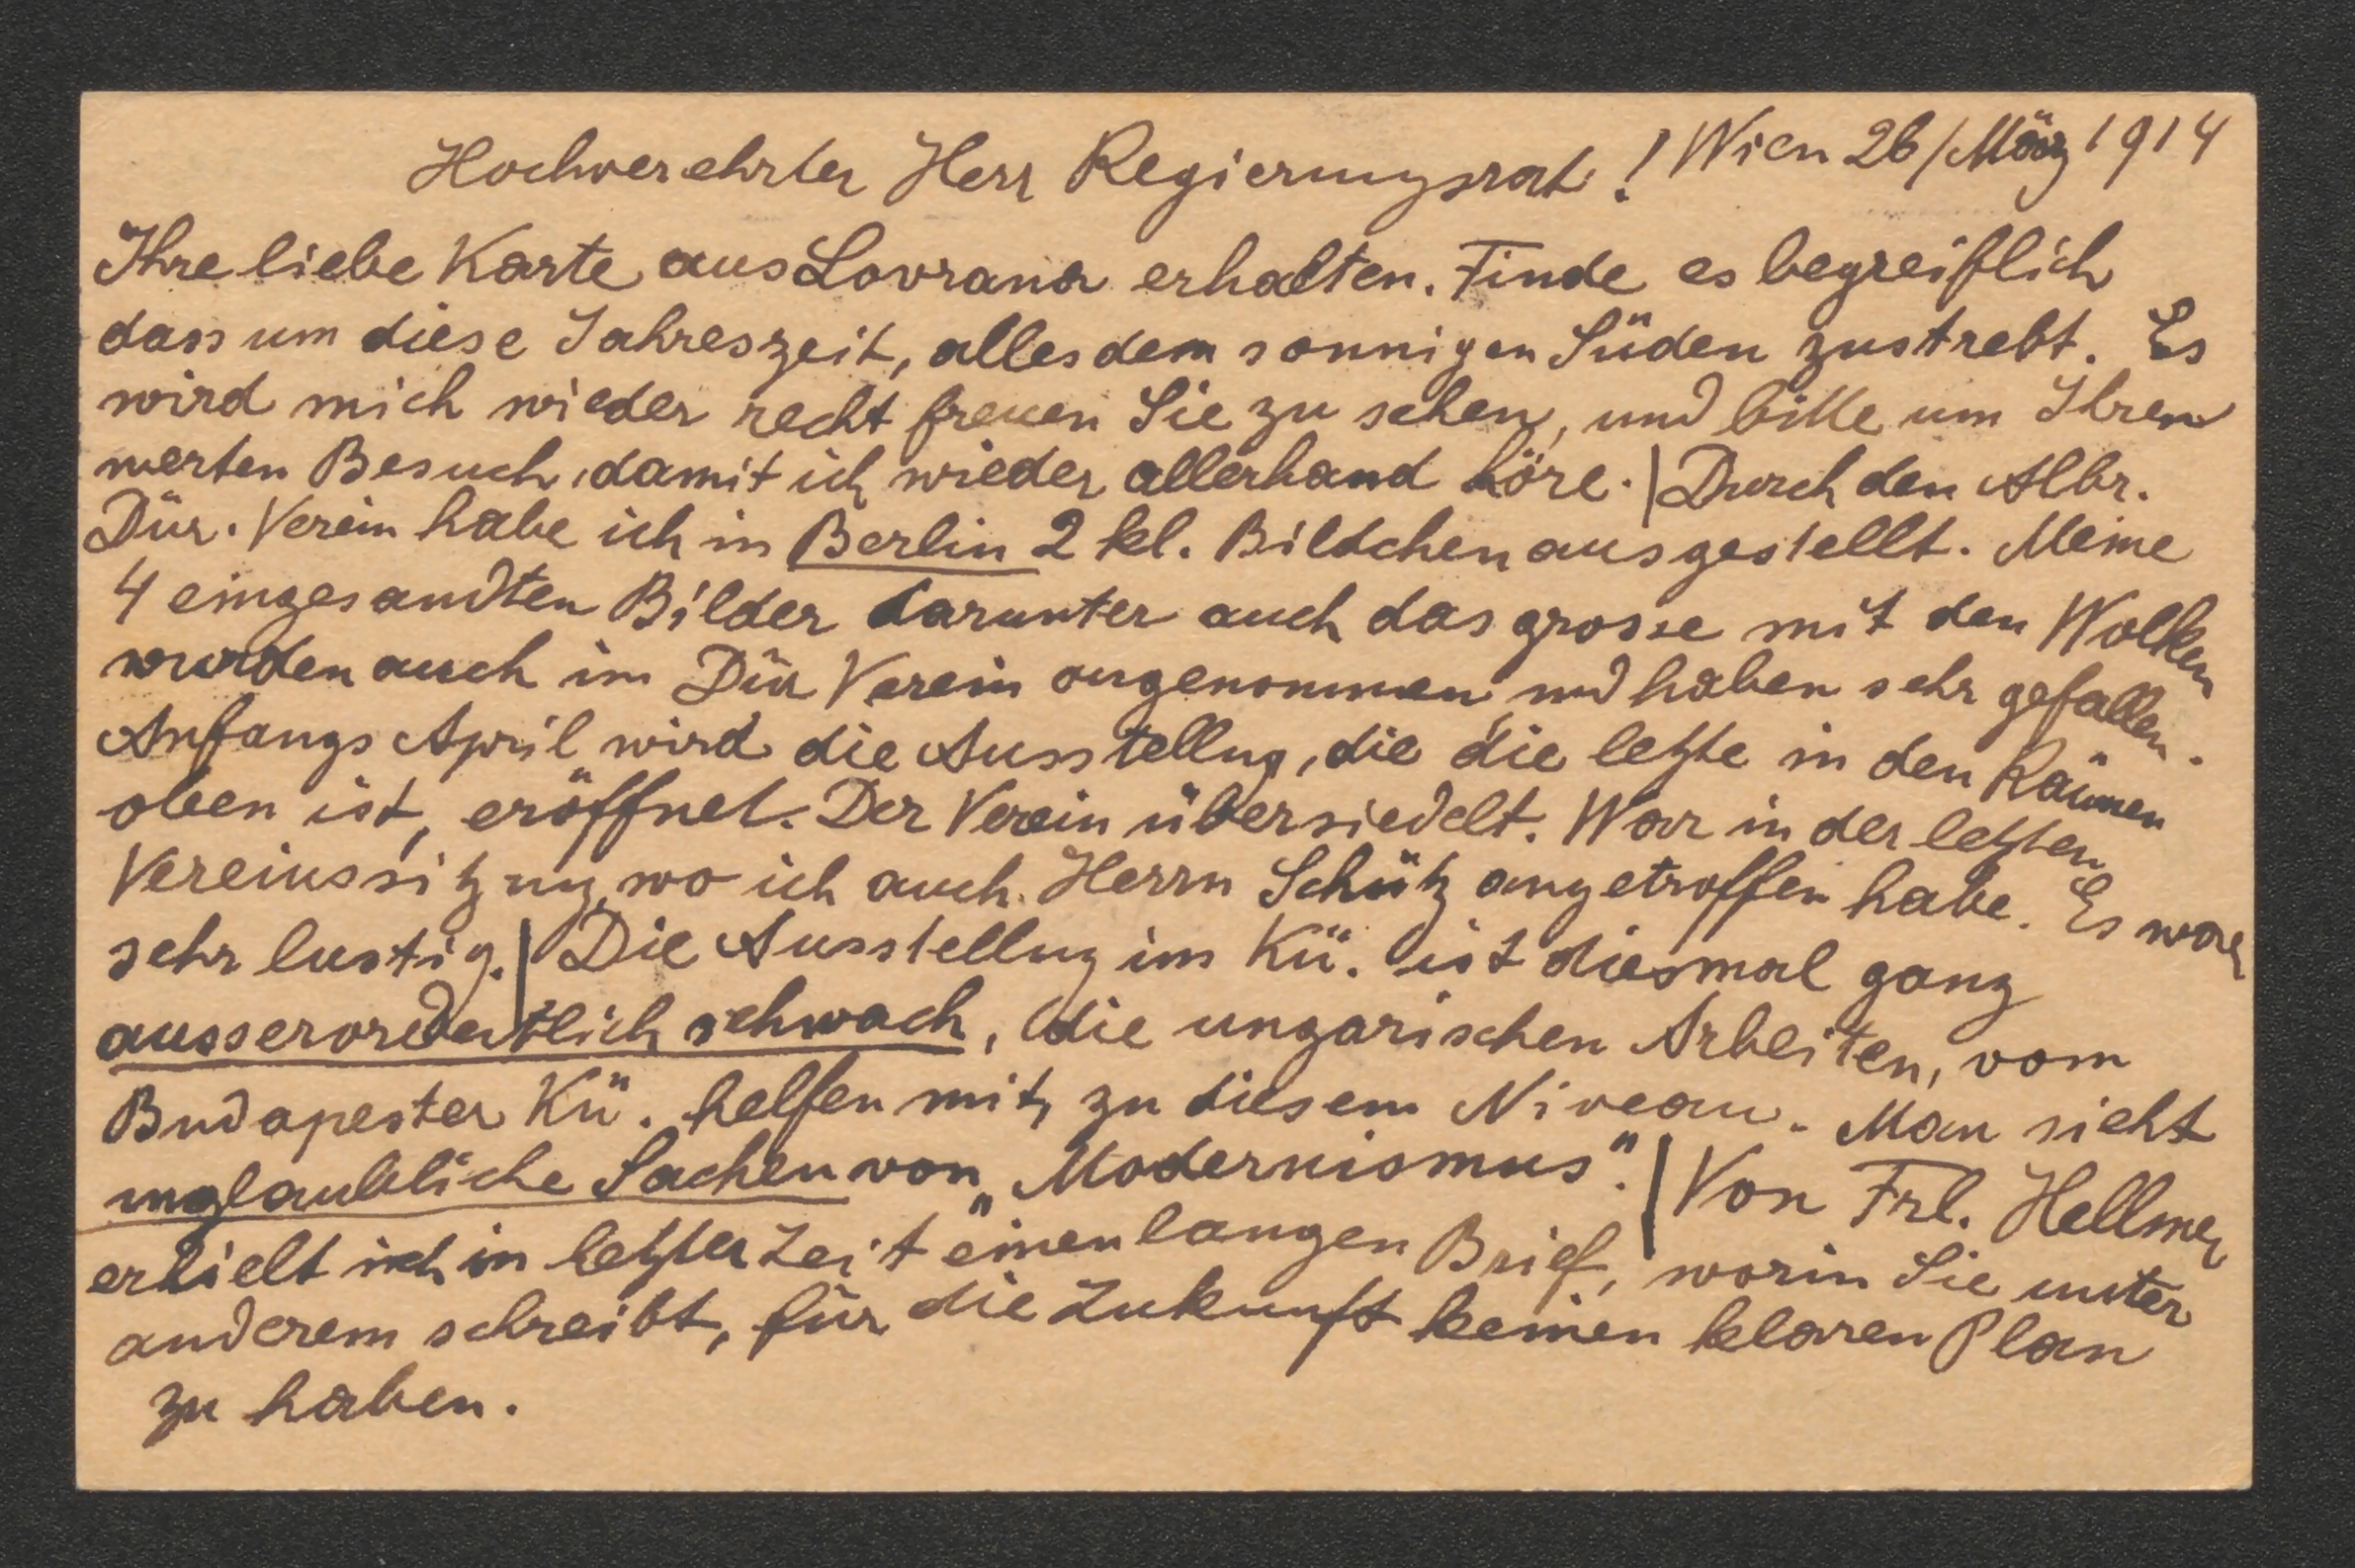 Hochverehrter Herr Regierungsrat! Wien 26/März 1914
Ihre liebe Karte aus Lovrana erhalten. Finde es begreiflich
dass um diese Jahreszeit, alles dem sonnigen Süden zustrebt. Es
wird mich wieder recht freuen Sie zu sehen, und bitte um Ihren
werten Besuch, damit ich wieder allerhand höre. | Durch den Albr.
Dür. Verein habe ich in Berlin 2 kl. Bildchen ausgestellt. Meine
4 eingesandten Bilder darunter auch das grosse mit den Wolken
wurden auch im Dür Verein angenommen und haben sehr gefallen.
Anfangs April wird die Ausstellung, die die letzte in den Räumen
oben ist, eröffnet. Der Verein übersiedelt. War in der letzten
Vereinssitzung, wo ich auch Herrn Schütz angetroffen habe. Es war
sehr lustig. | Die Ausstellung im Kü. ist diesmal ganz
ausserordentlich schwach, die ungarischen Arbeiten, vom
Budapester Kü. helfen mit, zu diesem Niveau. Man sieht
unglaubliche Sachen von „Modernismus". | Von Frl. Hellmer
erhielt ich in letzter Zeit einen langen Brief, worin Sie unter
anderem schreibt, für die Zukunft keinen klaren Plan
zu haben.